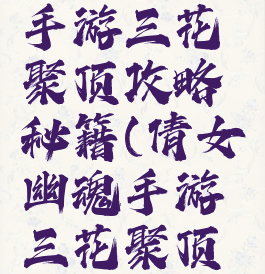 手游三花
聚顶攻略
秘籍(倩女
幽魂手游
三花聚顶